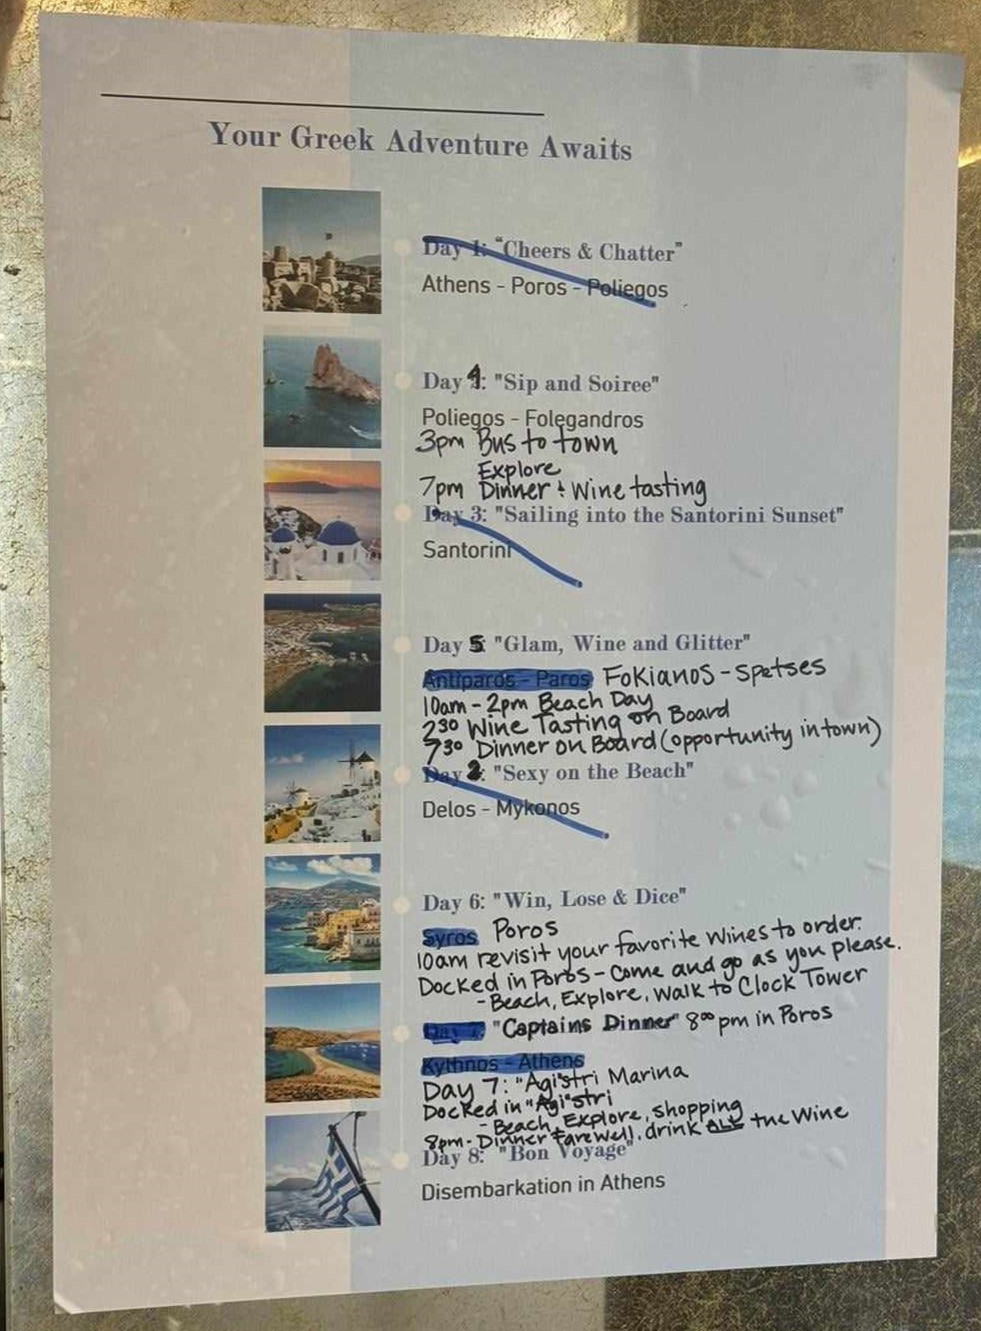 Your Greek Adventure Awaits
Day 1: "Cheers & Chatter"
Athens - Poros - Poliegos
Day 4: "Sip and Soiree"
Poliegos - Folegandros
3pm Bus to town
Explore
7pm Dinner + Wine tasting
Day 3: "Sailing into the Santorini Sunset"
Santorini
Day 5: "Glam, Wine and Glitter"
Antiparos - Paros Fokianos - Spetses
10am - 2pm Beach Day
2³⁰ Wine Tasting on Board
7³⁰ Dinner on Board (opportunity in town)
Day 2: "Sexy on the Beach"
Delos - Mykonos
Day 6: "Win, Lose & Dice"
Syros Poros
10am revisit your favorite Wines to order.
Docked in Poros - Come and go as you please.
- Beach, Explore, Walk to Clock Tower
Day 7: "Captains Dinner" 8⁰⁰ pm in Poros
Kythnos - Athens
Day 7: "Agistri Marina
Docked in "Agi"stri
- Beach, Explore, shopping
8pm - Dinner farewell, drink ALL the Wine
Day 8: "Bon Voyage"
Disembarkation in Athens